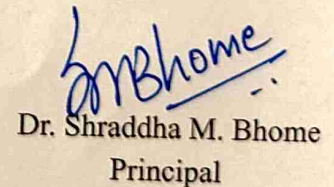 SMBhome
Dr. Shraddha M. Bhome
Principal